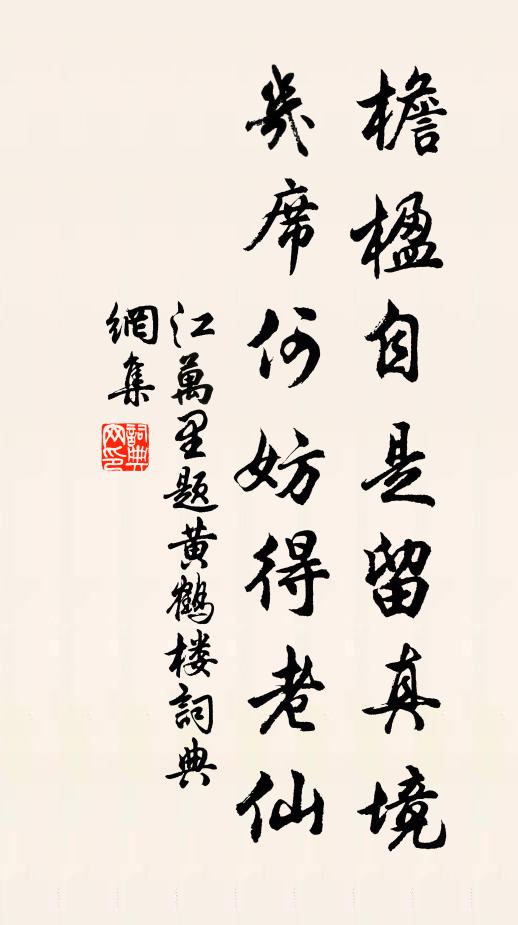 檐楹自是留真境
几席何妨得老仙
江萬里题黄鶴楼詞典
網集
詞典
网印